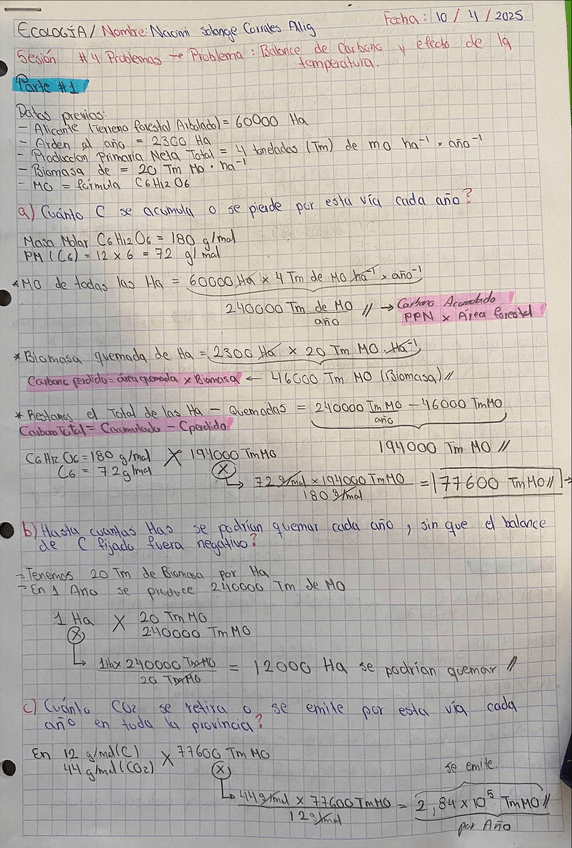 ECOLOGÍA / Nombre: Naomi Solange Corrales Alig Fecha: 10 / 4 / 2025
Sesión #4 Problemas → Problema: Balance de Carbono y efecto de la
temperatura.
Parte #1
Datos previos:
- Alicante (Terreno Forestal Arbolado) = 60000 Ha
- Arden al año = 2300 Ha
- Produccion Primaria Neta Total = 4 toneladas (Tm) de MO ha⁻¹ × año⁻¹
- Biomasa de = 20 Tm MO · ha⁻¹
- MO = fórmula C6H12O6
a) Cuánto C se acumula o se pierde por esta vía cada año?
Masa Molar C6H12O6 = 180 g/mol
PM (C6) = 12 × 6 = 72 g/mol
* MO de todas las Ha = 60000 Ha × 4 Tm de MO ha⁻¹ × año⁻¹
240000 Tm de MO // → Carbono Acumulado
año PPN × Área Forestal
* Biomasa quemada de Ha = 2300 Ha × 20 Tm MO Ha⁻¹
Carbono perdido = área quemada × Biomasa ← 46000 Tm MO (Biomasa) //
* Restamos el Total de las Ha - Quemadas = 240000 Tm MO - 46000 Tm MO
año
Carbono Total = C acumulado - C perdido
194000 Tm MO //
C6H12O6 = 180 g/mol X 194000 Tm MO
C6 = 72 g/mol (X)
↳ 72 g/mol × 194000 Tm MO = 77600 Tm MO // →
180 g/mol
b) Hasta cuantas Has se podrían quemar cada año, sin que el balance
de C fijado fuera negativo?
- Tenemos 20 Tm de Biomasa por Ha
- En 1 Año se produce 240000 Tm de MO
1 Ha X 20 Tm MO
(X) 240000 Tm MO
↳ 1 Ha × 240000 Tm MO = 12000 Ha se podrían quemar //
20 Tm MO
c) Cuánto CO2 se retira o se emite por esta vía cada
año en toda la provincia?
En 12 g/mol (C) X 77600 Tm MO
44 g/mol (CO2) (X)
se emite
↳ 44 g/mol × 77600 Tm MO = 2,84 × 10⁵ Tm MO //
12 g/mol
por Año